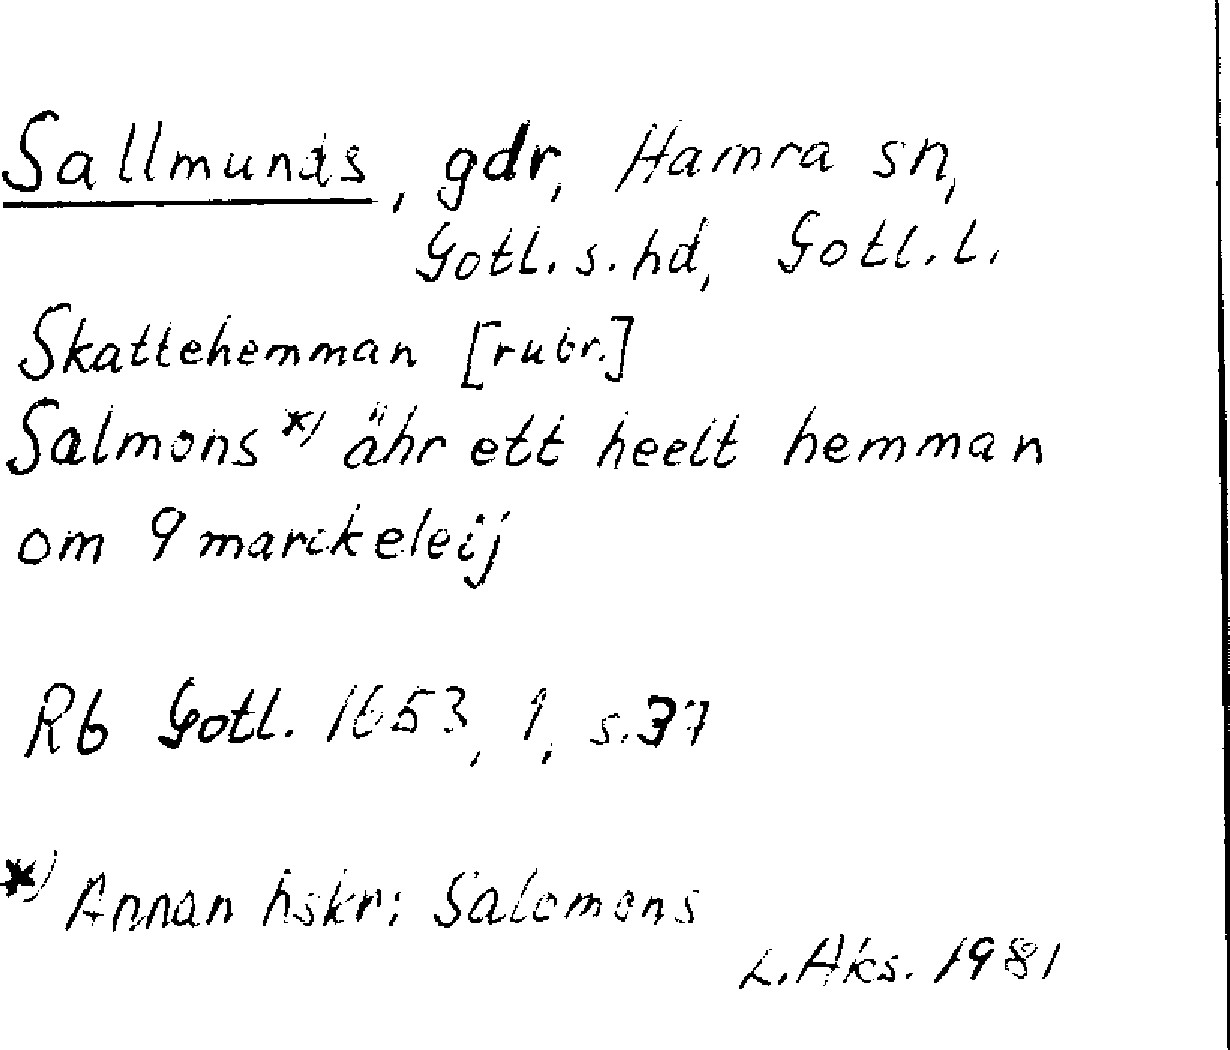 Sallmunds, gdr, Hamra sn,
Gotl. s. hd, Gotl. l.
Skattehemman [rubr.]
Salmons *) ähr ett heelt hemman
om 9 marckeleij
Rb Gotl. 1653, 1, s. 37
*) Annan hskr: Salomons
L. Aks. 1981